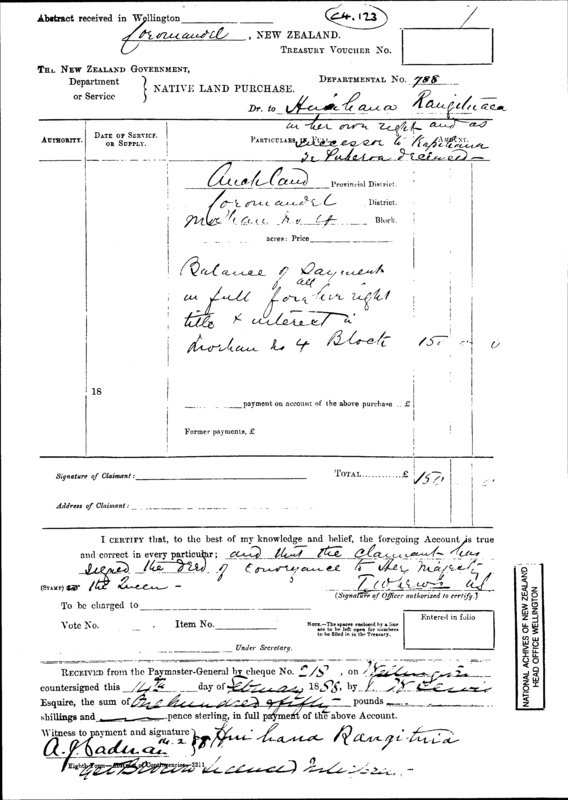 Abstract received in Wellington
C4.123
Coromandel, NEW ZEALAND.
TREASURY VOUCHER No.
THE NEW ZEALAND GOVERNMENT,
Department
or Service
NATIVE LAND PURCHASE.
DEPARTMENTAL No. 788
Dr. to Huihana Rangituia
in her own right and as
AUTHORITY.
DATE OF SERVICE
OR SUPPLY.
PARTICULARS
AMOUNT.
successor to
deceased —
Auckland Provincial District.
Coromandel District.
Moehau No 4 Block.
acres: Price
Balance of payment
in full for all her right
title & interest in
Moehau No 4 Block 150
18
payment on account of the above purchase .. £
Former payments, £
Signature of Claimant:
TOTAL..........£ 150
Address of Claimant:
I CERTIFY that, to the best of my knowledge and belief, the foregoing Account is true
and correct in every particular; and that the claimant has
signed the deed of conveyance to Her Majesty
(STAMP) the Queen —
(Signature of Officer authorized to certify.)
To be charged to
Vote No. Item No.
NOTE.—The spaces enclosed by a line
are to be left open for numbers
to be filled in in the Treasury.
Entered in folio
Under Secretary.
RECEIVED from the Paymaster-General by cheque No. 218, on Wellington
countersigned this 14th day of February 1888, by T W Lewis
Esquire, the sum of One hundred & fifty pounds
shillings and pence sterling, in full payment of the above Account.
Witness to payment and signature
A. J. Cadman 14.2.88 Huihana Rangituia
Licensed Interpreter.
NATIONAL ARCHIVES OF NEW ZEALAND
HEAD OFFICE WELLINGTON